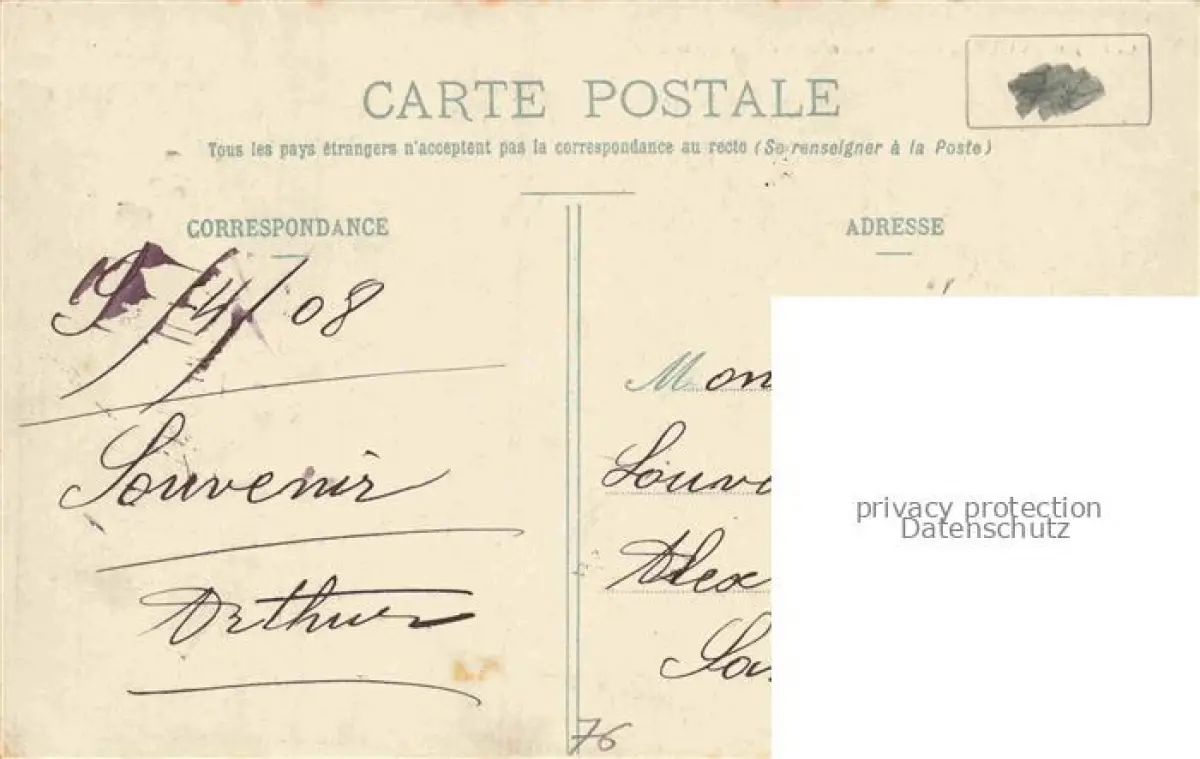 CARTE POSTALE
Tous les pays étrangers n'acceptent pas la correspondance au recto (Se renseigner à la Poste)
CORRESPONDANCE
9/4/08
Souvenir
Arthur
ADRESSE
Mon
Louv
Alex
privacy protection
Datenschutz
76